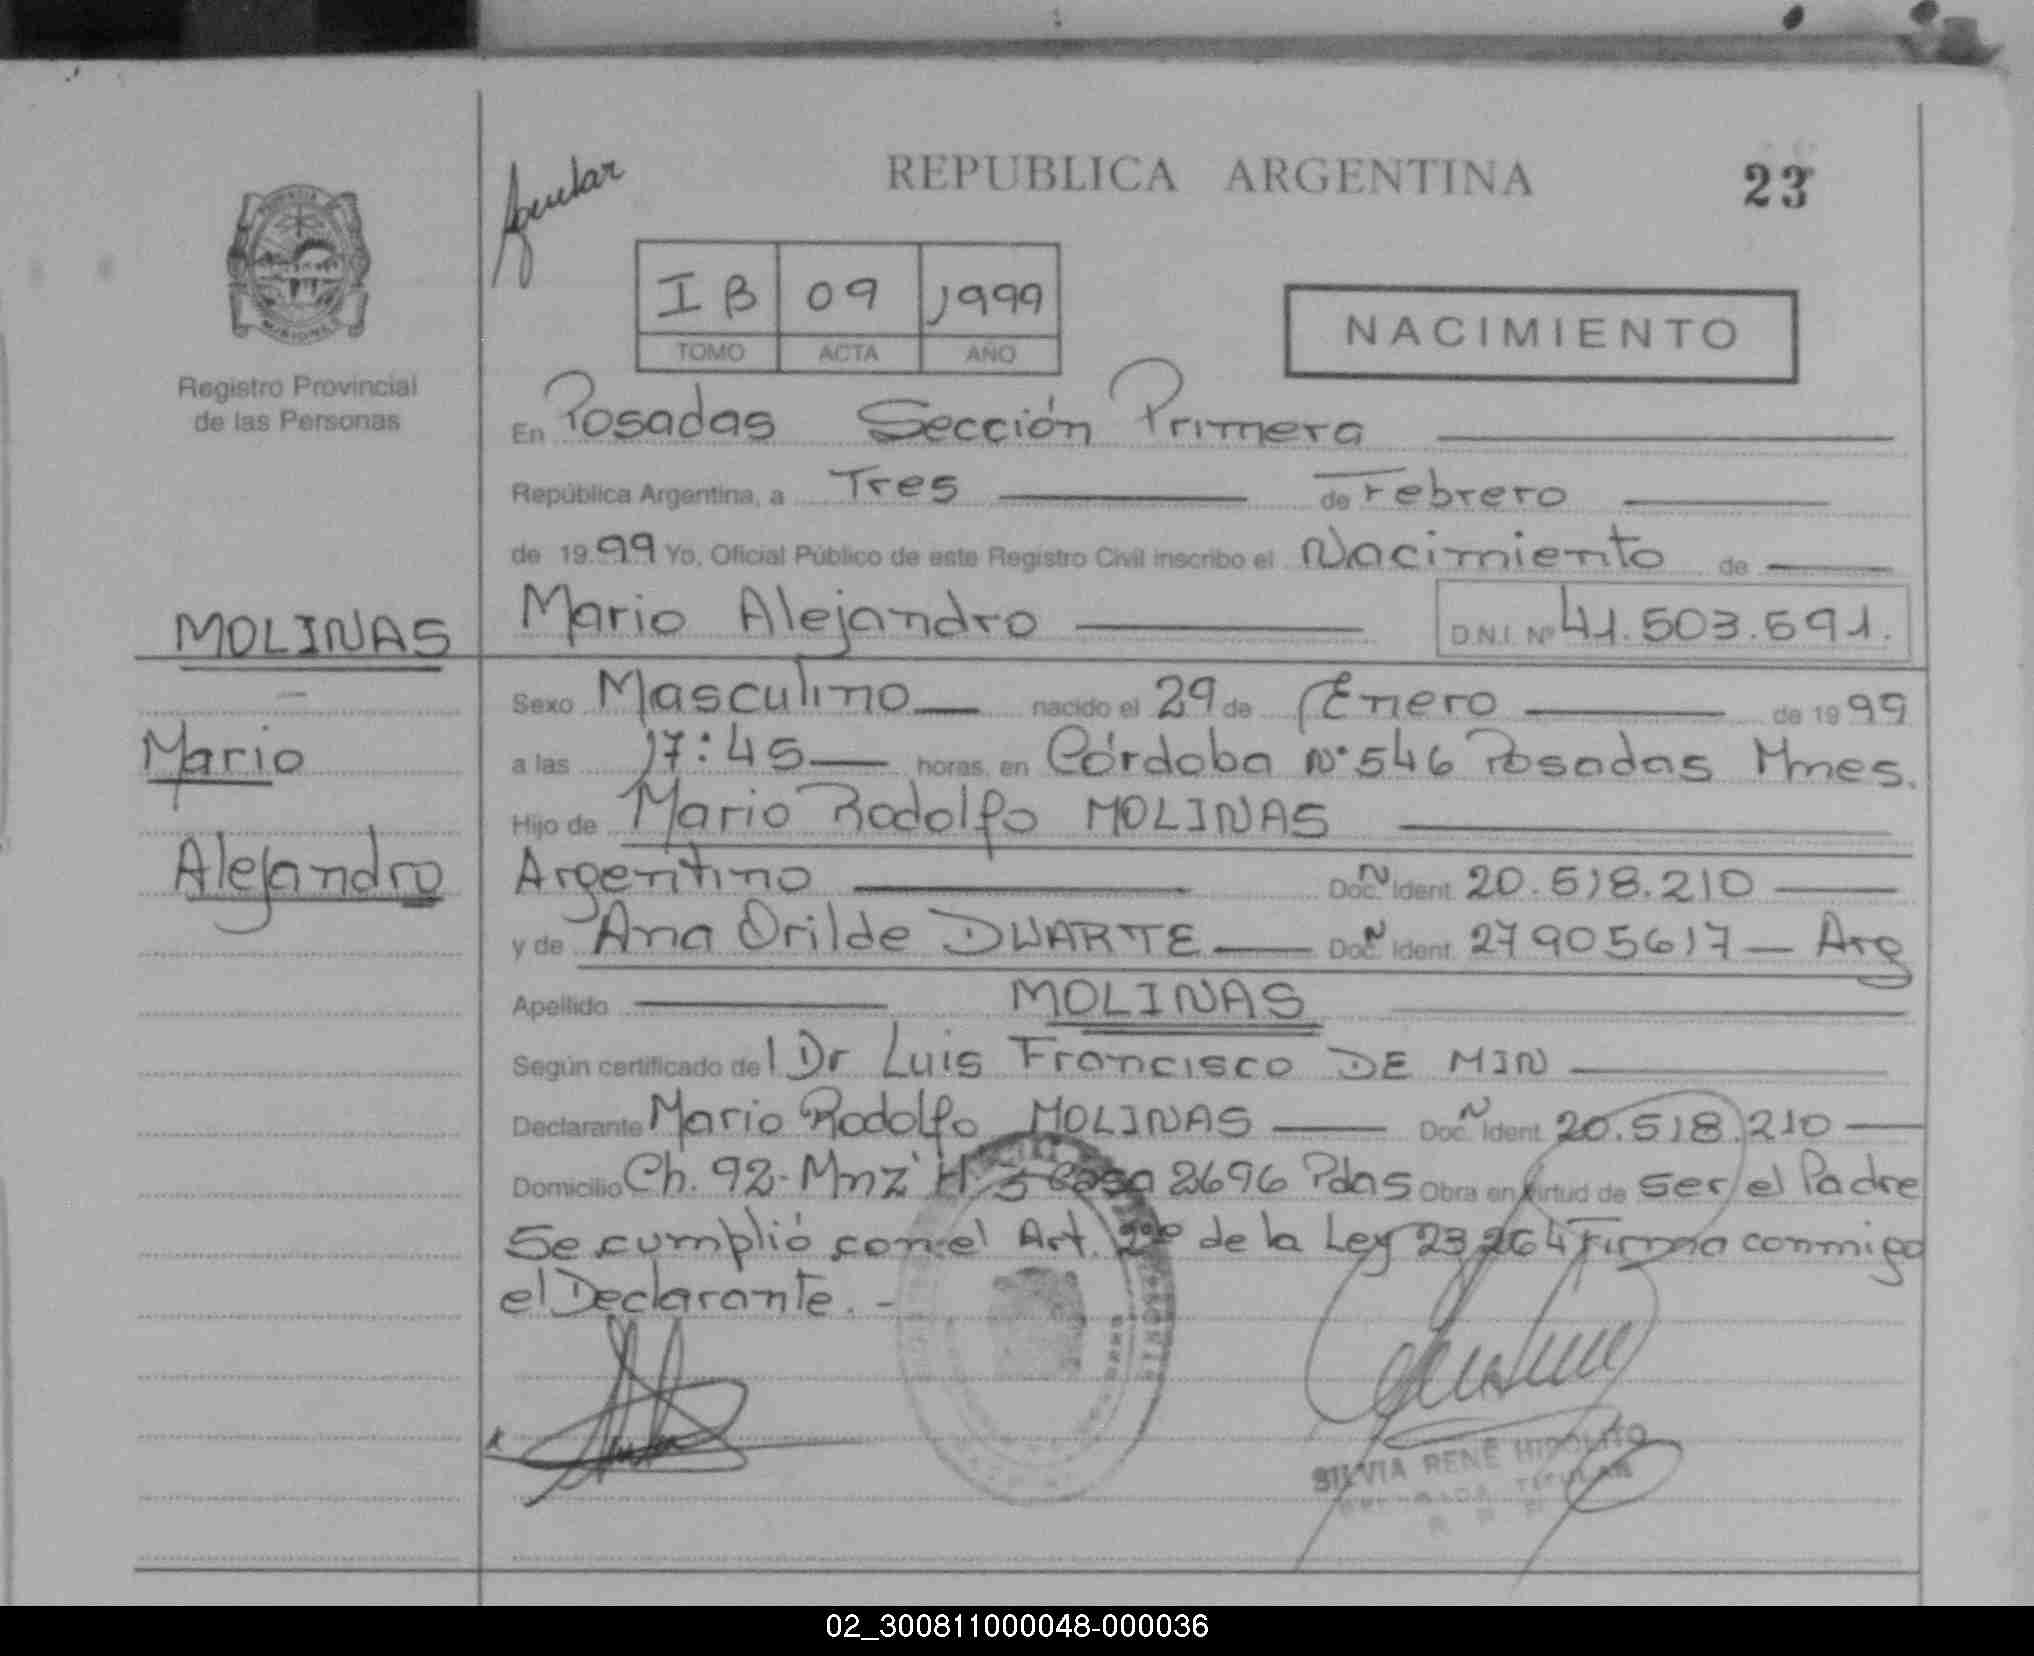 REPUBLICA ARGENTINA
23
I B 09 1999
TOMO ACTA AÑO
NACIMIENTO
Registro Provincial
de las Personas
En Posadas Sección Primera
República Argentina, a Tres de Febrero
de 1999 Yo, Oficial Público de este Registro Civil inscribo el Nacimiento de
MOLINAS
Mario Alejandro D.N.I. Nº 41.503.591.
Mario
Alejandro
Sexo Masculino nacido el 29 de Enero de 1999
a las 17:45 horas, en Córdoba Nº 546 Posadas Mnes.
Hijo de Mario Rodolfo MOLINAS
Argentino Doc. N Ident. 20.518.210
y de Ana Orilde DUARTE Doc. N Ident. 27905617 - Arg
Apellido MOLINAS
Según certificado del Dr Luis Francisco DE MIN
Declarante Mario Rodolfo MOLINAS Doc. N Ident. 20.518.210
Domicilio Ch. 92- Mnz Casa 2696 Pdas Obra en virtud de ser el Padre
Se cumplió con el Art. de la Ley 23264 Firma conmigo
el Declarante. -
SILVIA RENE HIPOLITO
TITULAR
02_300811000048-000036